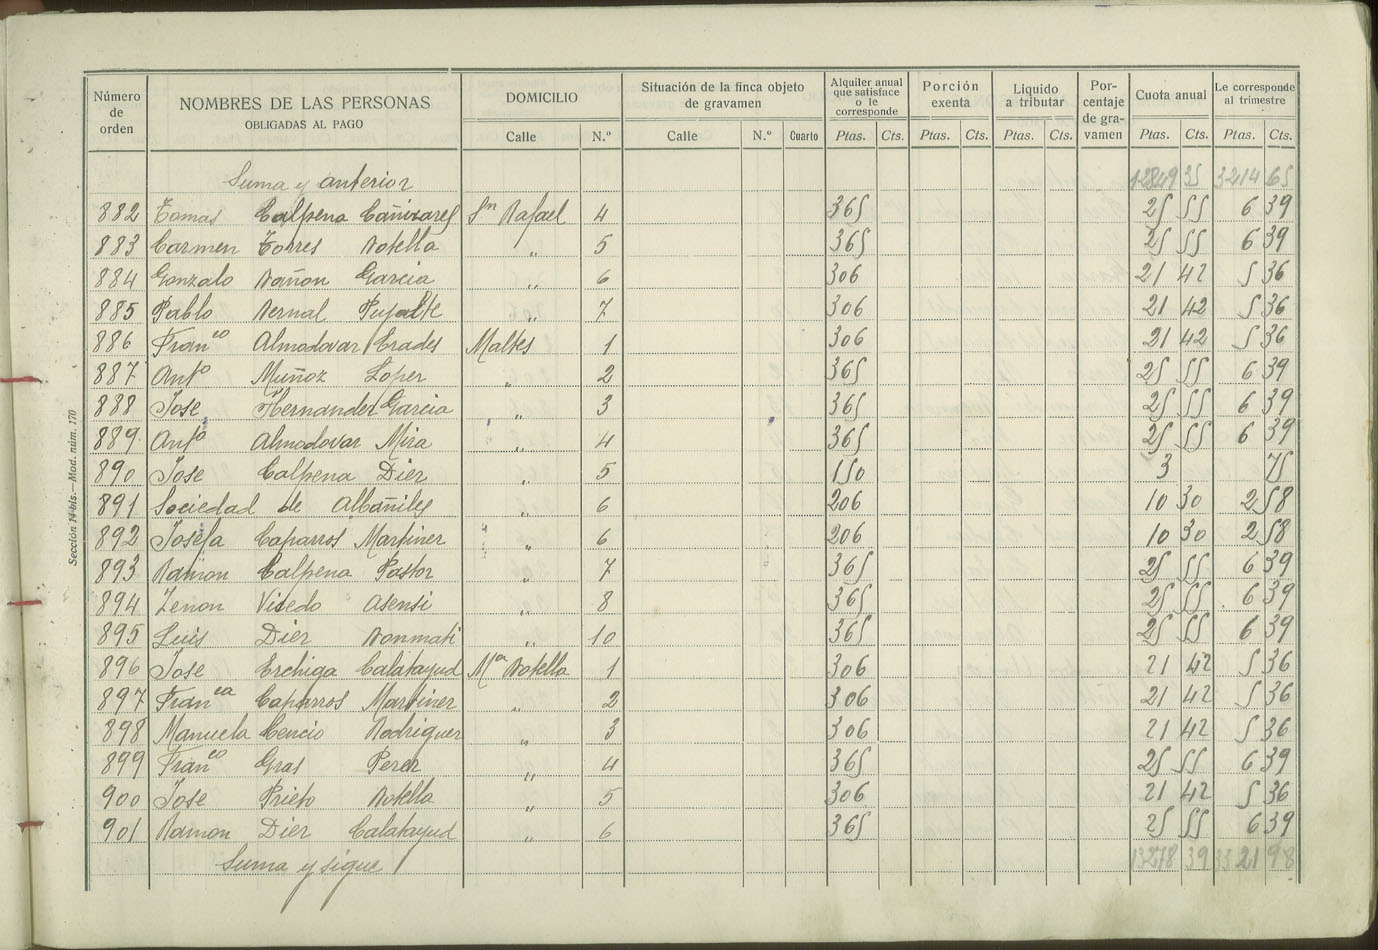 Número de orden NOMBRES DE LAS PERSONAS OBLIGADAS AL PAGO DOMICILIO Situación de la finca objeto de gravamen Alquiler anual que satisface o le corresponde Porción exenta Liquido a tributar Por-centaje de gra-vamen Cuota anual Le corresponde al trimestre
Calle N.º Calle N.º Cuarto Ptas. Cts. Ptas. Cts. Ptas. Cts. Ptas. Cts. Ptas. Cts.
Suma y anterior 12849 35 3214 65
882 Tomas Calpena Cañizares Sn Rafael 4 365 25 55 6 39
883 Carmen Torres Botella " 5 365 25 55 6 39
884 Gonzalo Bañon Garcia " 6 306 21 42 5 36
885 Pablo Bernal Pujalte " 7 306 21 42 5 36
886 Franco Almodovar Prades Maltes 1 306 21 42 5 36
887 Anto Muñoz Loper " 2 365 25 55 6 39
888 Jose Hernandez Garcia " 3 365 25 55 6 39
889 Anto Almodovar Mira " 4 365 25 55 6 39
890 Jose Calpena Dier " 5 150 3 75
891 Sociedad de Albañiles " 6 206 10 30 2 58
892 Josefa Caparros Martiner " 6 206 10 30 2 58
893 Ramon Calpena Pastor " 7 365 25 55 6 39
894 Zenon Vicedo Asensi " 8 365 25 55 6 39
895 Luis Dier Bonmati " 10 365 25 55 6 39
896 Jose Erchiga Calatayud Ma Botella 1 306 21 42 5 36
897 Franca Caparros Martiner " 2 306 21 42 5 36
898 Manuela Cencio Rodriguer " 3 306 21 42 5 36
899 Franco Gras Perez " 4 365 25 55 6 39
900 Jose Prieto Botella " 5 306 21 42 5 36
901 Ramon Dier Calatayud " 6 365 25 55 6 39
Suma y sigue 13278 39 3321 98
Sección 14 bis.—Mod. núm. 170